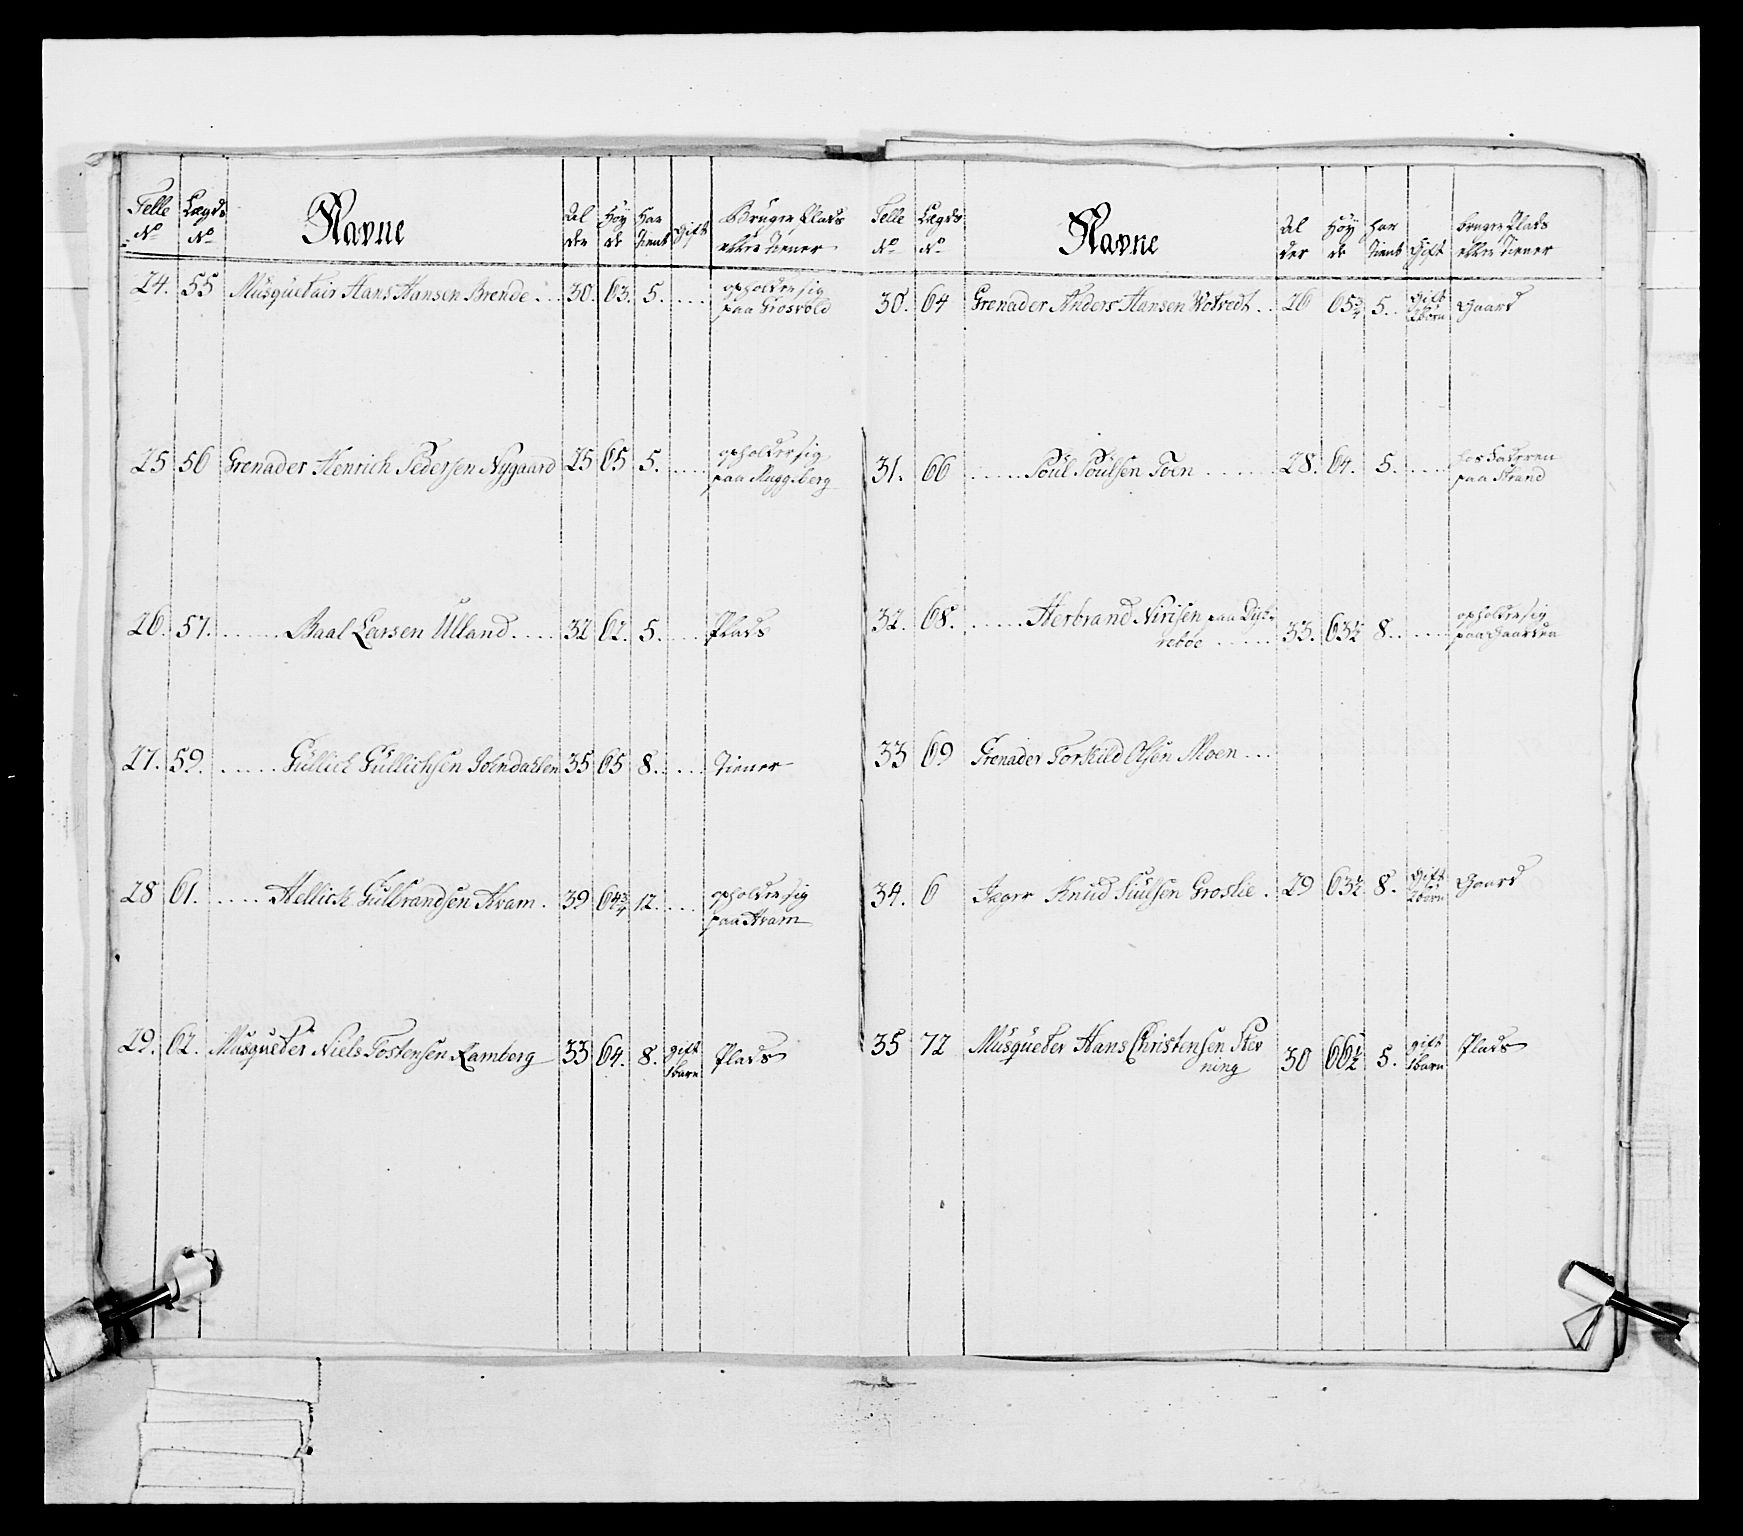 Telle No Lægds No Navne Al der Höy de Har Tient Gift Bruger Plads eller Tiener
24. 55 Musquetair Hans Hansen Brende . . . 30. 63. 5. . . . . opholder sig
paa Grosvold
25 56 Grenader Henrich Pedersen Nygaard 25 65 5. . . . . opholder sig
paa Muggsberg
26. 57. . . . . . . Baal Larsen Ulland . . . . 32 62. 5. . . . . Plads
27. 59. . . . . . . Gullich Gullichsen Jondahlen 35 65 8. . . . . Tiener
28 61. . . . . . Hellich Gulbrandsen Kram . 39 64 3/4 12. . . . opholder sig
paa Kram
29. 62. Musqueter Niels Tostensen Ramberg 33 64. 8. gift
1 barn Plads
Telle No Lægds No Navne Al der Höy de Har Tient Gift bruger Plads eller Tiener
30. 64 Grenader Anders Hansen Wotvedt . . 26 65 3/4 5. . Gift
2 börn Gaard
31. 66 . . . . . . Poul Poulsen Toen . . . . . . . 28. 64. 5. . . . . hos Faderen
paa Strand
32. 68. . . . . . . Herbrand Nirisen paa
. . . . . 33. 63 1/2 8. . . . . opholder sig
paa Gaarden
33 69 Grenader Torkild Olsen Moen . . .
34. 6 Jæger Knud Juulsen Groslie . 29 63 1/2 8. Gift
2 börn Gaard
35 72 Musqueter Hans Christensen Stev
ning 30 66 1/2 5. gift
1 barn Plads